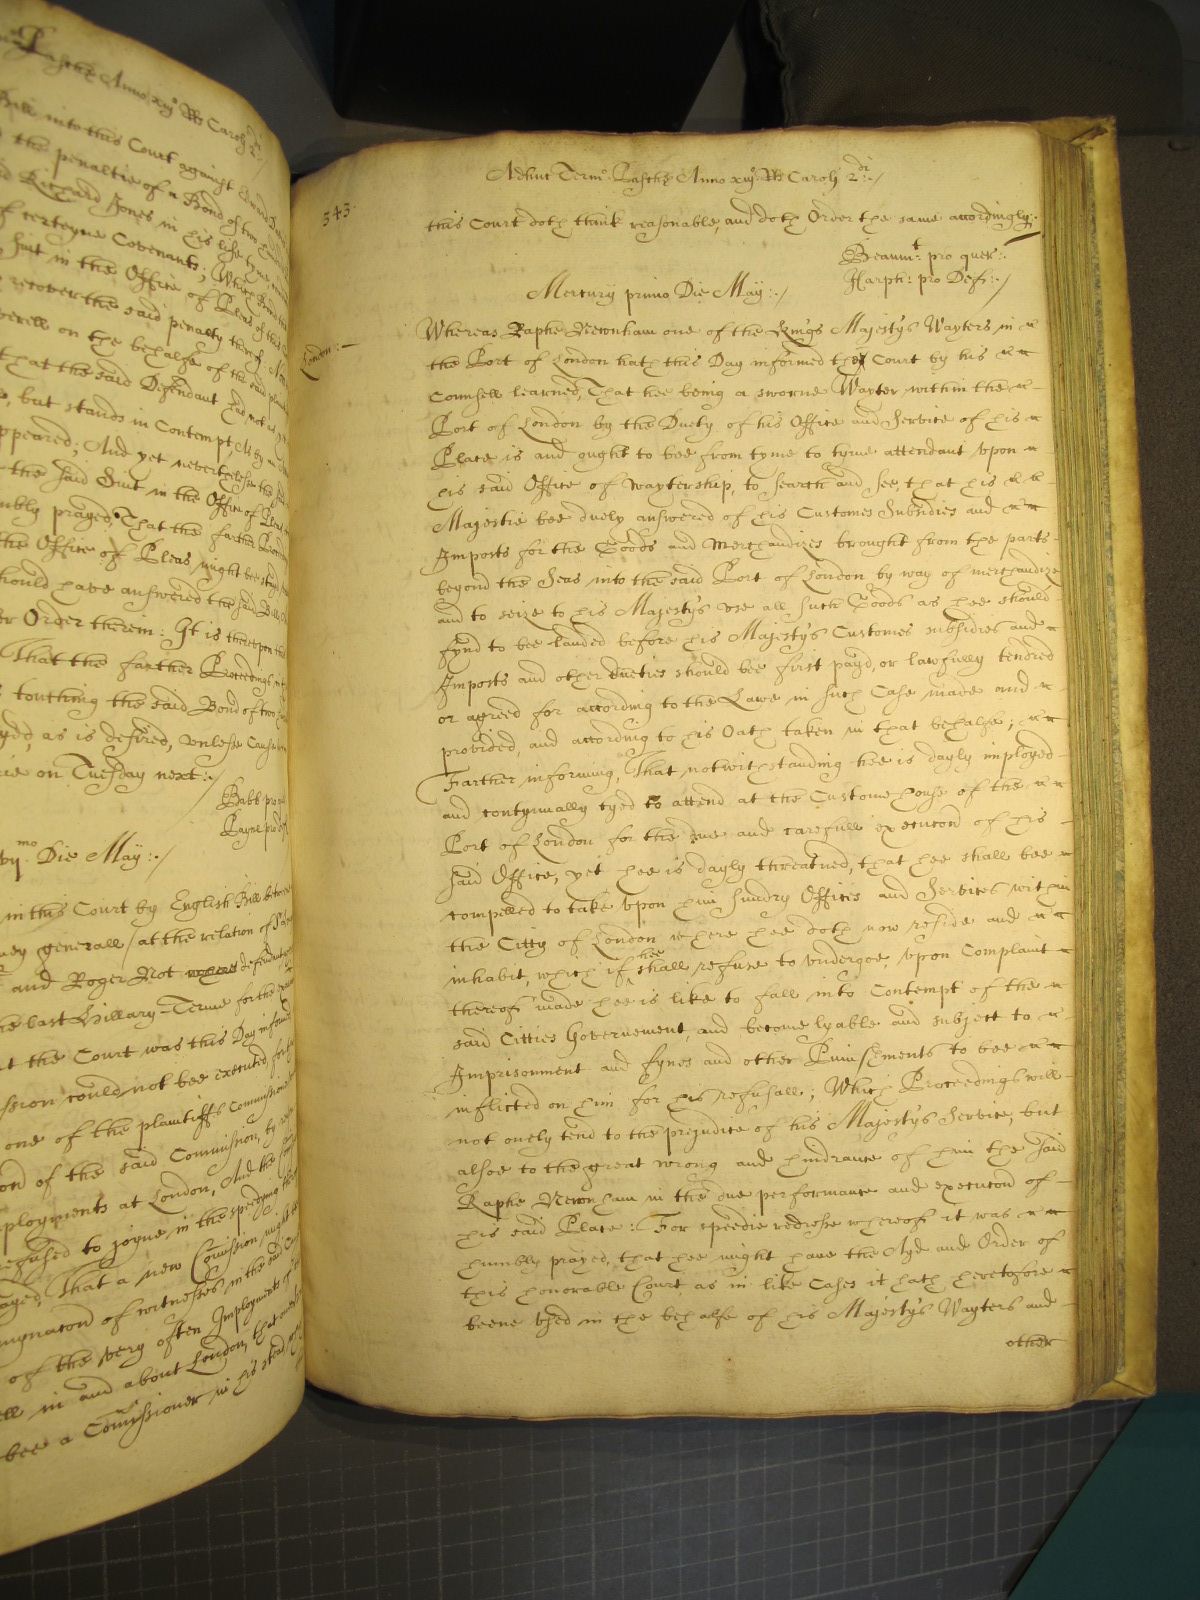 Paschæ Anno xiijº Rs Caroli 2di
Bill into this Court against Edward
the penaltie of a Bond of two
Richard Jones in his life tyme
of certeyne Covenants; Which Bond
suit in the Office of Pleas of this
recover the said penalty thereof
on the behalfe of the said
that the said Defendant had not
but stands in Contempt,
appeared; And yet neverthelesse the
the said Suit in the Office of Pleas
humbly prayed, That the farther Proceedings
the Office of Pleas might bee stayed
should have answered the said Bill
Order therein: It is thereupon
That the farther Proceedings
touching the said Bond of two
as is desired, unlesse Cause
on Tuesday next:./
Babb pro
Payne pro
Die May:./
in this Court by English Bill betweene
generall, at the relation of
and Roger Not defendant
the last Hillary-Terme for the
the Court was this Day informed
could not bee executed, for
one of the plaintiffs Commissioners
of the said Commission, by
Imployments at London, And the
refused to joyne in the speeding
That a new Comission might
of witnesses in the said
of the very often Imployments of
in and about London, that
bee a Comissioner in his stead
343.
Adhuc Termº Paschæ Anno xiijº Rs Caroli 2di:./
this Court doth think reasonable, and doth Order the same accordingly:.
Beaumt: pro quer:.
Harph: pro Def:./
Mercurij primo Die May:./
London:
Whereas Raphe Newnham one of the Kings Majestys Wayters in
the Port of London hath this Day informed the Court by his
Counsell learned, That hee being a sworne Wayter within the
Port of London by the Duety of his Office and Service of his
Place is and ought to bee from tyme to tyme attendant upon
his said Office of Waytership, to search and see, that his
Majestie bee duely answered of his Customes Subsidies and
Imposts for the Goods and Merchandizes brought from the parts
beyond the Seas into the said Port of London by way of merchandize
and to seize to his Majestys use all such Goods as hee should
fynd to bee landed before his Majestys Customes subsidies and
Imposts and other dueties should bee first payd, or lawfully tendred
or agreed for according to the Lawe in such Case made and
provided, and according to his Oath taken in that behalfe;
Farther informing, That notwithstanding hee is dayly imployed
and contynually tyed to attend at the Custome house of the
Port of London for the due and carefull execucon of his
said Office, yet hee is dayly threatned, that hee shall bee
compelled to take upon him sundry Offices and Services within
the Citty of London where hee doth now reside and
inhabit, which if hee shall refuse to undergoe, upon Complaint
thereof made hee is like to fall into Contempt of the
said Citties Governement, and become lyable and subject to
Imprisonment and fynes and other Punishments to bee
inflicted on him for his refusall; Which Proceedings will
not onely tend to the prejudice of his Majestys Service, but
alsoe to the great wrong and hindrance of him the said
Raphe Newnham in the due performance and execucon of
his said Place: For speedie redresse whereof it was
humbly prayed, that hee might have the Ayd and Order of
this honorable Court, as in like Cases it hath heretofore
beene used in the behalfe of his Majestys Wayters and
other